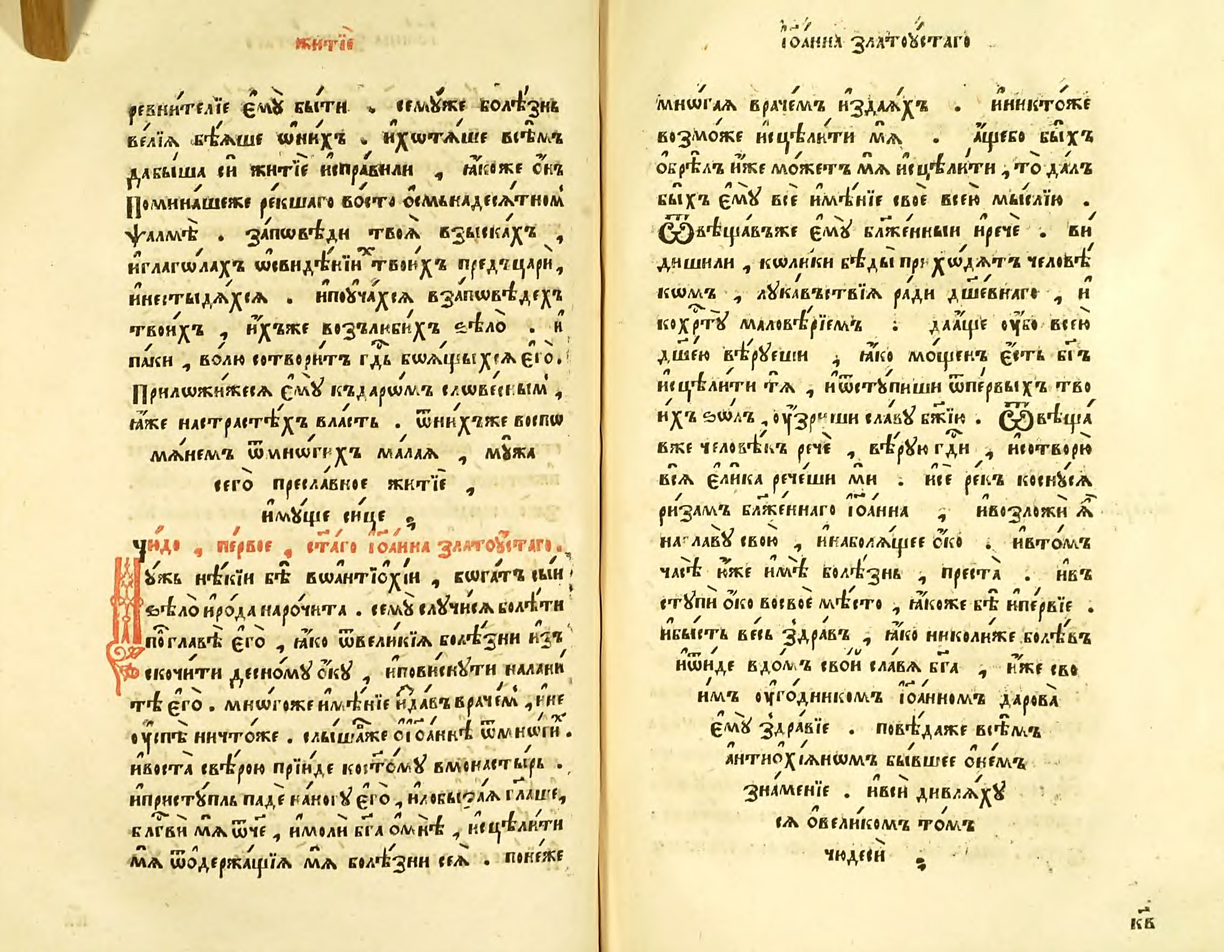 житїѐ
ревни́телїе є҆мꙋ̀ бы́ти . семꙋ́же болѣ́знь
ве́лїѧ бѣѧ́ше ѡ҆ни́хъ . и҆хѡтѧ́ше всѣ́мъ
дабы́ша сѝ житїѐ и҆спра́вили , ꙗ҆́коже ѻ҆́нъ
Помина́шеже ре́кшаго восто̀ ѻ҆смьна́десѧтном
ѱалмѣ̀ . за́пѡвѣди твоѧ̀ взыска́хъ ,
и҆глаго́лахъ ѡ҆свидѣ́нїи твои́хъ предъцарѝ ,
и҆нестыдѧ́хсѧ . и҆поꙋча́хсѧ вза́пѡвѣдехъ
твои́хъ , и҆́хъже возъли́бихъ ѕѣлѡ̀ . и҆
па́ки , во́лю сотвори́тъ гдⷭ҇ь боѧ́щыхсѧ є҆гѡ̀ .
Прилѡжи́жесѧ є҆мꙋ̀ къдарѡ́мъ слѡве́снымъ ,
ꙗ҆́же настра́стѣхъ вла́сть . ѿни́хъже воспѡ
мѧне́мъ ѿмнѡ́гихъ ма́лаѧ , мꙋ́жа
сегѡ̀ пресла́вное житїѐ ,
и҆мꙋ́ще си́це ;
чю́до , пе́рвое , ст҃а́го і҆ѡа́нна златоꙋ́стаго .
Мꙋ́жь нѣ́кїи бѣ̀ вѡантїѻхі́и , бѡга́тъ сы́и
ѕѣлѡ̀ и҆ро́да наро́чита . семꙋ̀ слꙋчи́сѧ болѣ́ти
поглавѣ̀ є҆гѡ̀ , ꙗ҆́ко ѿвели́кїѧ болѣ́зни и҆зъ
скочи́ти десно́мꙋ ѻ҆́кꙋ , и҆пови́снꙋти налани́
тѣ є҆гѡ̀ . мнѡ́гоже и҆мѣ́нїе и҆да́въ враче́мъ , и҆не
ᲂу҆спѣ̀ ничто́же . слы́шаже ѻ҆і҆ѡа́ннѣ ѿмнѡ́гихъ .
и҆воста̀ свѣ́рою прїи́де костⷪ҇мꙋ вмонасты́рь .
и҆пристꙋ́пль падѐ наногꙋ̀ є҆гѡ̀ , и҆лобыза́ѧ глⷶ҇ше ,
блг҇вѝ мѧ̀ ѻ҆́ч҃е , и҆молѝ бг҃а ѻ҆мнѣ̀ , и҆сцѣли́ти
мѧ̀ ѿѻ҆держа́щїѧ мѧ̀ болѣ́зни сеѧ̀ . поне́же
і҆ѻа́нна златоꙋ́стаго
мнѡ́гаѧ враче́мъ и҆здаѧ́хъ . и҆никто́же
возмо́же и҆сцѣли́ти мѧ̀ . а҆́щебо бы́хъ
ѻ҆брѣ́лъ и҆́же мо́жетъ мѧ̀ и҆сцѣли́ти , то̀ да́лъ
бы́хъ є҆мꙋ̀ всѐ и҆мѣ́нїе своѐ все́ю мы́слїю .
Ѿвѣща́въже є҆мꙋ̀ бл҃же́нныи и҆речѐ . ви́
дишили , кѡ́лики бѣды̀ прихѡ́дѧтъ человѣ́
кѡмъ , лꙋка́вьствїѧ ра́ди дш҃е́внаго , и҆
кохрⷭ҇тꙋ̀ маловѣ́рїемъ : даа́ще ᲂу҆́бо все́ю
дш҃е́ю вѣ́рꙋеши , ꙗ҆́ко мо́щенъ є҆́сть бг҃ъ
и҆сцѣли́ти тѧ̀ , и҆ѿстꙋ́пиши ѿпе́рвыхъ тво
и́хъ ѕѡ́лъ , ᲂу҆́зриши сла́вꙋ бж҃їю . Ѿвѣща́
вже человѣ́къ речѐ , вѣ́рꙋю гдⷭ҇и , и҆сотворю̀
всѧ̀ є҆ли́ка рече́ши мѝ . и҆сѐ ре́къ коснꙋ́сѧ
ри́замъ бл҃же́ннаго і҆ѻа́нна , и҆возложѝ ꙗ҆̀
наглавꙋ̀ свою̀ , и҆набола́щее ѻ҆́ко . и҆вто́мъ
ча́сѣ и҆́же и҆мѣ̀ болѣ́знь , преста̀ . и҆въ
стꙋпѝ ѻ҆́ко восвоѐ мѣ́сто , ꙗ҆́коже бѣ̀ и҆пе́рвїе .
и҆бы́сть ве́сь здра́въ , ꙗ҆́ко николи́же болѣ́въ
и҆ѿи́де вдо́мъ сво́й сла́вѧ бг҃а , и҆́же сво
и́мъ ᲂу҆го́дникомъ і҆ѻа́нномъ дарова̀
є҆мꙋ̀ здра́вїе . повѣ́даже всѣ́мъ
а҆нтиѻхїѧ́нѡмъ бы́вшее ѻ҆не́мъ
зна́менїе . и҆всѝ дивлѧ́хꙋ
сѧ ѻ҆вели́комъ то́мъ
чюдесѝ ;
к҃в